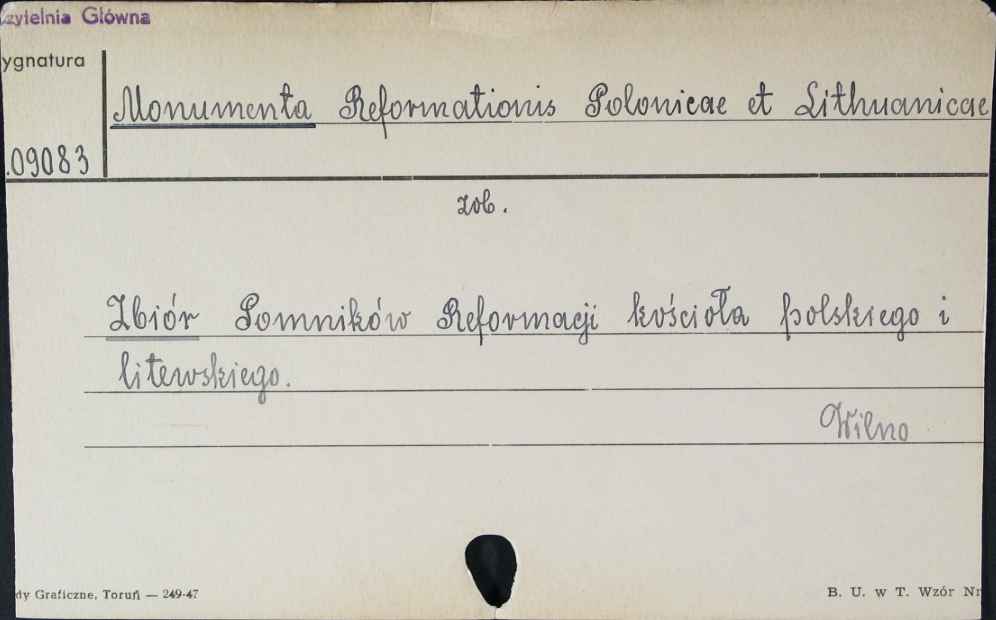 zytelnia Główna
ygnatura
Monumenta Reformationis Polonicae et Lithuanicae
.09083
zob.
Zbiór Pomników Reformacji kościoła polskiego i
litewskiego.
Wilno
dy Graficzne, Toruń — 249-47
B. U. w T. Wzór Nr